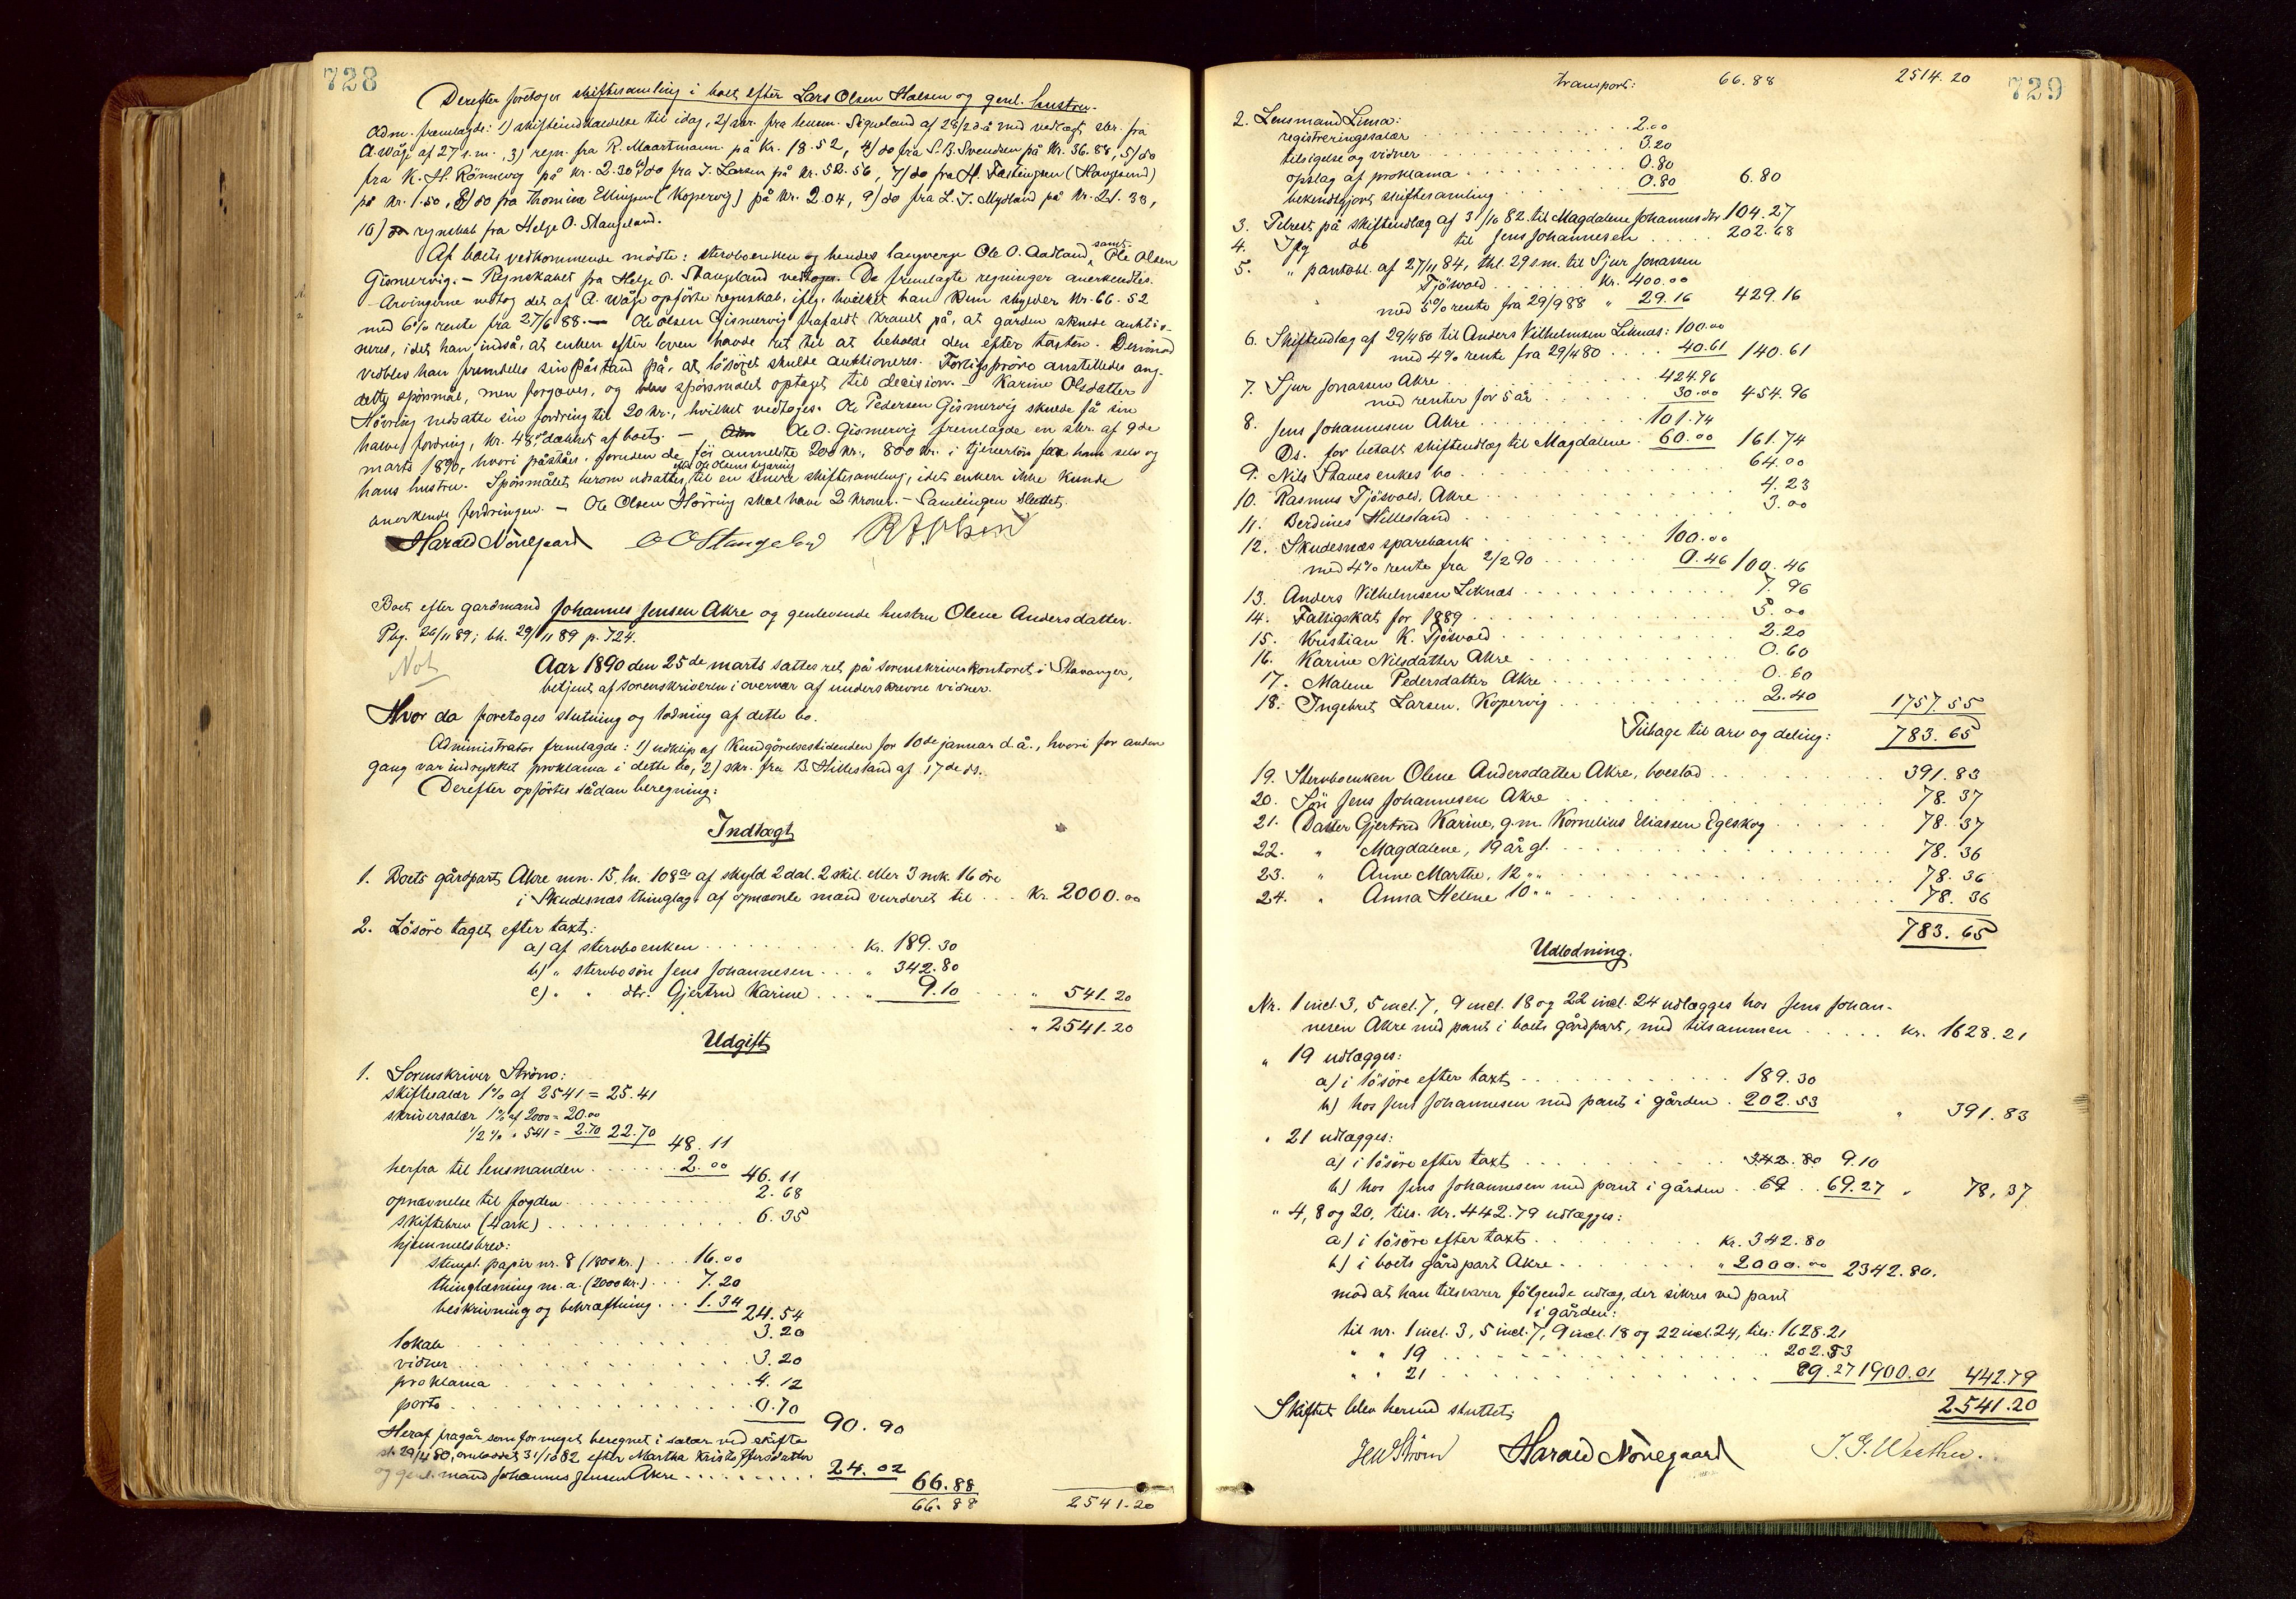 728
Derefter foretoges skiftesamling i boet efter Lars Olsen Halsen og genl. hustru.
Adm. fremlagde: 1) skifteindkaldelse til idag, 2) skr. fra lensm. Sigveland af 28/2 d.å. med vedlagt skr. fra
A. Våge af 27 s.m., 3) regn. fra R. Maartmann på kr. 18.52, 4) do fra S. B. Svendsen på kr. 36.88, 5) do
fra K. H. Rönnevig på kr. 2.30, 6) do fra J. Larsen på kr. 52.56, 7) do fra H. (Haugesund)
på kr. 1.50, 8) do fra Thomine Ellingsen (Kopervig) på kr. 2.04, 9) do fra L. J. Mydland på kr. 21.38,
10) do regnskab fra Helge O. Stangeland.
Af boets vedkommende mödte: stervboenken og hendes laugverge Ole O. Aadland, samt Ole Olsen
Gismervig. — Regnskabet fra Helge O. Stangeland vedtoges. De fremlagte regninger anerkendtes.
Arvingerne vedtog det af A. Våge opförte regnskab, iflg. hvilket han kun skylder kr. 66.52
med 6% rente fra 27/6 88. — Ole Olsen Gismervig frafaldt kravet på, at gården skulde auktio-
neres, idet han indså, at enken efter loven havde ret til at beholde den efter taxten. Derimod
vedblev han fremdeles sin påstand på, at lösöret skulde auktioneres. Forligspröve anstilledes ang.
dette spörsmål, men forgjæves, og spörsmålet optaget til decision. — Karine Olsdatter
Hövring nedsatte sin fordring til 20 kr., hvilket vedtoges. Ole Pedersen Gismervig skulde få sin
halve fordring, kr. 48.00 dækket af boet. — Adm Ole O. Gismervig fremlagde en skr. af 9de
marts 1890, hvori påståes, foruden de för anmeldte 200 kr., 800 kr. i tjenerlön for ham selv og
hans hustru. Spörsmålet herom udsattes efter Ole Olsens begjæring til en senere skiftesamling, idet enken ikke kunde
anerkende fordringen. — Ole Olsen Hövring skal have 2 kroner. — Samlingen sluttet.
Harald Nörregaard O O Stangeland
Boet efter gardmand Johannes Jensen Akre og genlevende hustru Olene Andersdatter.
Pbg. 26/11 89; bh. 29/11 89 p. 724.
Not
Aar 1890 den 25de marts sattes ret på sorenskriverkontoret i Stavanger,
betjent af sorenskriveren i overvær af underskrevne vidner.
Hvor da foretoges slutning og lodning af dette bo.
Administrator fremlagde: 1) udklip af Kundgörelsestidenden for 10de januar d.å., hvori for anden
gang var indrykket proklama i dette bo, 2) skr. fra B. Hillesland af 17de ds.
Derefter opförtes sådan beregning:
Indtægt
1. Boets gårdpart Akre mn. 15, ln. 108a af skyld 2 dal. 2 skil. eller 3 mk. 16 öre
i Skudesnæs thinglag, af opnævnte mænd vurderet til ... Kr. 2000.00
2. Lösöre taget efter taxt:
a) af stervboenken ... kr. 189.30
b) " stervbosön Jens Johannesen ... " 342.80
c) " " dtr. Gjertrud Karine ... " 9.10 ... " 541.20
" 2541.20
Udgift
1. Sorenskriver Ström:
skiftesalær 1% af 2541 = 25.41
skriversalær 1% af 2000 = 20.00
1/2% " 541 = 2.70 22.70 48.11
herfra til lensmanden ... 2.00 46.11
opnævnelse til fogden ... 2.68
skiftebrev (4 ark) ... 6.35
hjemmelsbrev:
stempl. papir nr. 8 (1800 kr.) ... 16.00
thinglæsning m.a. (2000 kr.) ... 7.20
beskrivning og bekræftning ... 1.34 24.54
lokale ... 3.20
vidner ... 3.20
proklama ... 4.12
porto ... 0.70 90.90
Heraf fragår som formeget beregnet i salær ved skifte
sl. 29/4 80, omlodset 31/10 82 efter Martha Kristoffersdatter
og genl. mand Johannes Jensen Akre ... 24.02 66.88
66.88 2541.20
729
Transport: 66.88 2514.20
2. Lensmand Lima:
registreringssalær ... 2.00
tilsigelse og vidner ... 3.20
opslag af proklama ... 0.80
bekendtgjort skiftesamling ... 0.80 6.80
3. Tilrest på skifteudlæg af 31/10 82 til Magdalene Johannesdtr 104.27
4. Iflg do til Jens Johannesen ... 202.68
5. " pantobl. af 27/11 84, thl. 29 s.m. til Sjur Jonassen
Tjösvold ... kr. 400.00
med 5% rente fra 29/9 88 " 29.16 429.16
6. Skifteudlæg af 29/4 80 til Anders Vilhelmsen Liknæs: 100.00
med 4% rente fra 29/4 80 ... 40.61 140.61
7. Sjur Jonassen Akre ... 424.96
med renter for 5 år ... 30.00 454.96
8. Jens Johannesen Akre ... 101.74
Ds. for betalt skifteudlæg til Magdalene 60.00 161.74
9. Nils Staves enkes bo ... 64.00
10. Rasmus Tjösvold, Akre ... 4.23
11. Berdines Hillesland ... 3.00
12. Skudesnæs sparebank ... 100.00
med 4% rente fra 2/2 90 ... 0.46 100.46
13. Anders Vilhelmsen Liknæs ... 7.96
14. Fattigskat for 1889 ... 5.00
15. Kristian K. Tjösvold ... 2.20
16. Karine Nilsdatter Akre ... 0.60
17. Malene Pedersdatter Akre ... 0.60
18. Ingebret Larsen, Kopervig ... 2.40 1757.55
Tilbage til arv og deling: 783.65
19. Stervboenken Olene Andersdatter Akre, boeslod ... 391.83
20. Sön Jens Johannesen Akre ... 78.37
21. Datter Gjertrud Karine, g.m. Kornelius Eliassen Egeskog ... 78.37
22. " Magdalene, 19 år gl. ... 78.36
23. " Anne Marthe, 12 " " ... 78.36
24. " Anna Helene 10 " " ... 78.36
783.65
Udlodning.
Nr. 1 incl. 3, 5 incl. 7, 9 incl. 18 og 22 incl. 24 udlægges hos Jens Johan-
nesen Akre med pant i boets gårdpart, med tilsammen ... kr. 1628.21
" 19 udlægges:
a) i lösöre efter taxt ... 189.30
b) hos Jens Johannesen med pant i gården . 202.53 " 391.83
" 21 udlægges:
a) i lösöre efter taxt ... 342.80 9.10
b) hos Jens Johannesen med pant i gården . 69 . 69.27 " 78.37
" 4, 8 og 20, tils. kr. 442.79 udlægges:
a) i lösöre efter taxt ... kr. 342.80
b) i boets gårdpart Akre ... " 2000.00 2342.80.
mod at han tilsvarer fölgende udlæg, der sikres ved pant
i gården:
til nr. 1 incl. 3, 5 incl. 7, 9 incl. 18 og 22 incl. 24, tils: 1628.21
" " 19 ... 202.53
" " 21 ... 69.27 1900.01 442.79
Skiftet blev hermed sluttet; 2541.20
Ström Harald Nörregaard